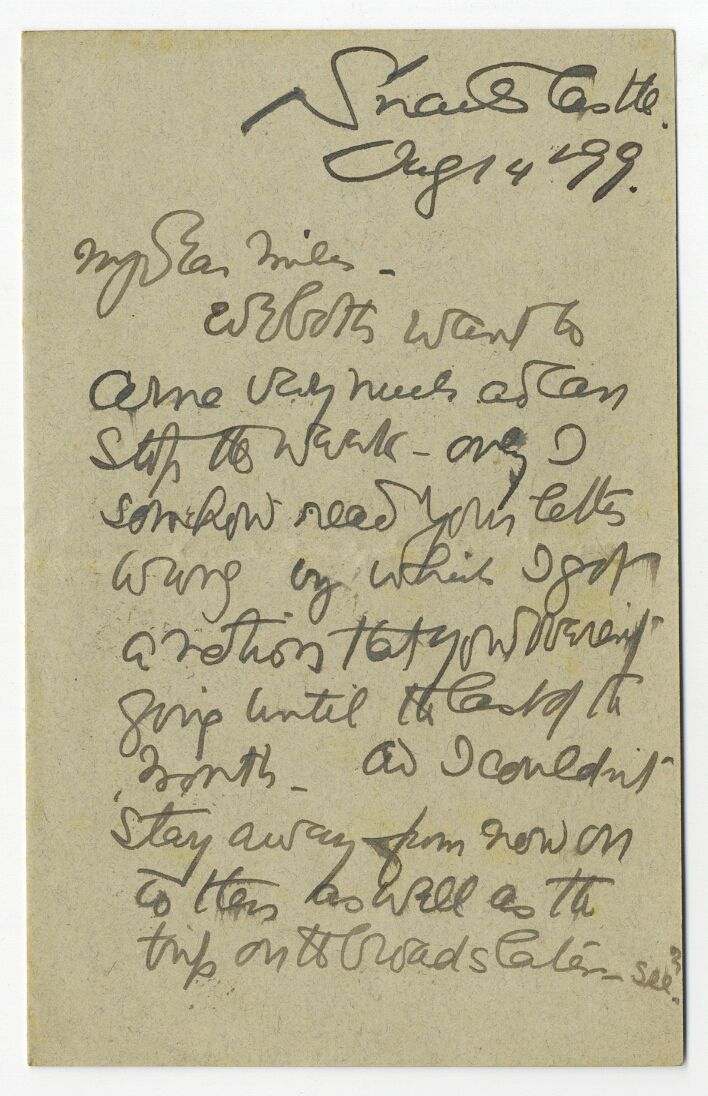 Castle.
Aug 14 '99.
My dear Miles -
We both want to
come very much and can
stop the week - only I
somehow read your letter
wrong by which I got
a notion that you weren't
going until the last of the
month - and I couldn't
stay away from now on
to then as well as the
trip on the broads later - see?